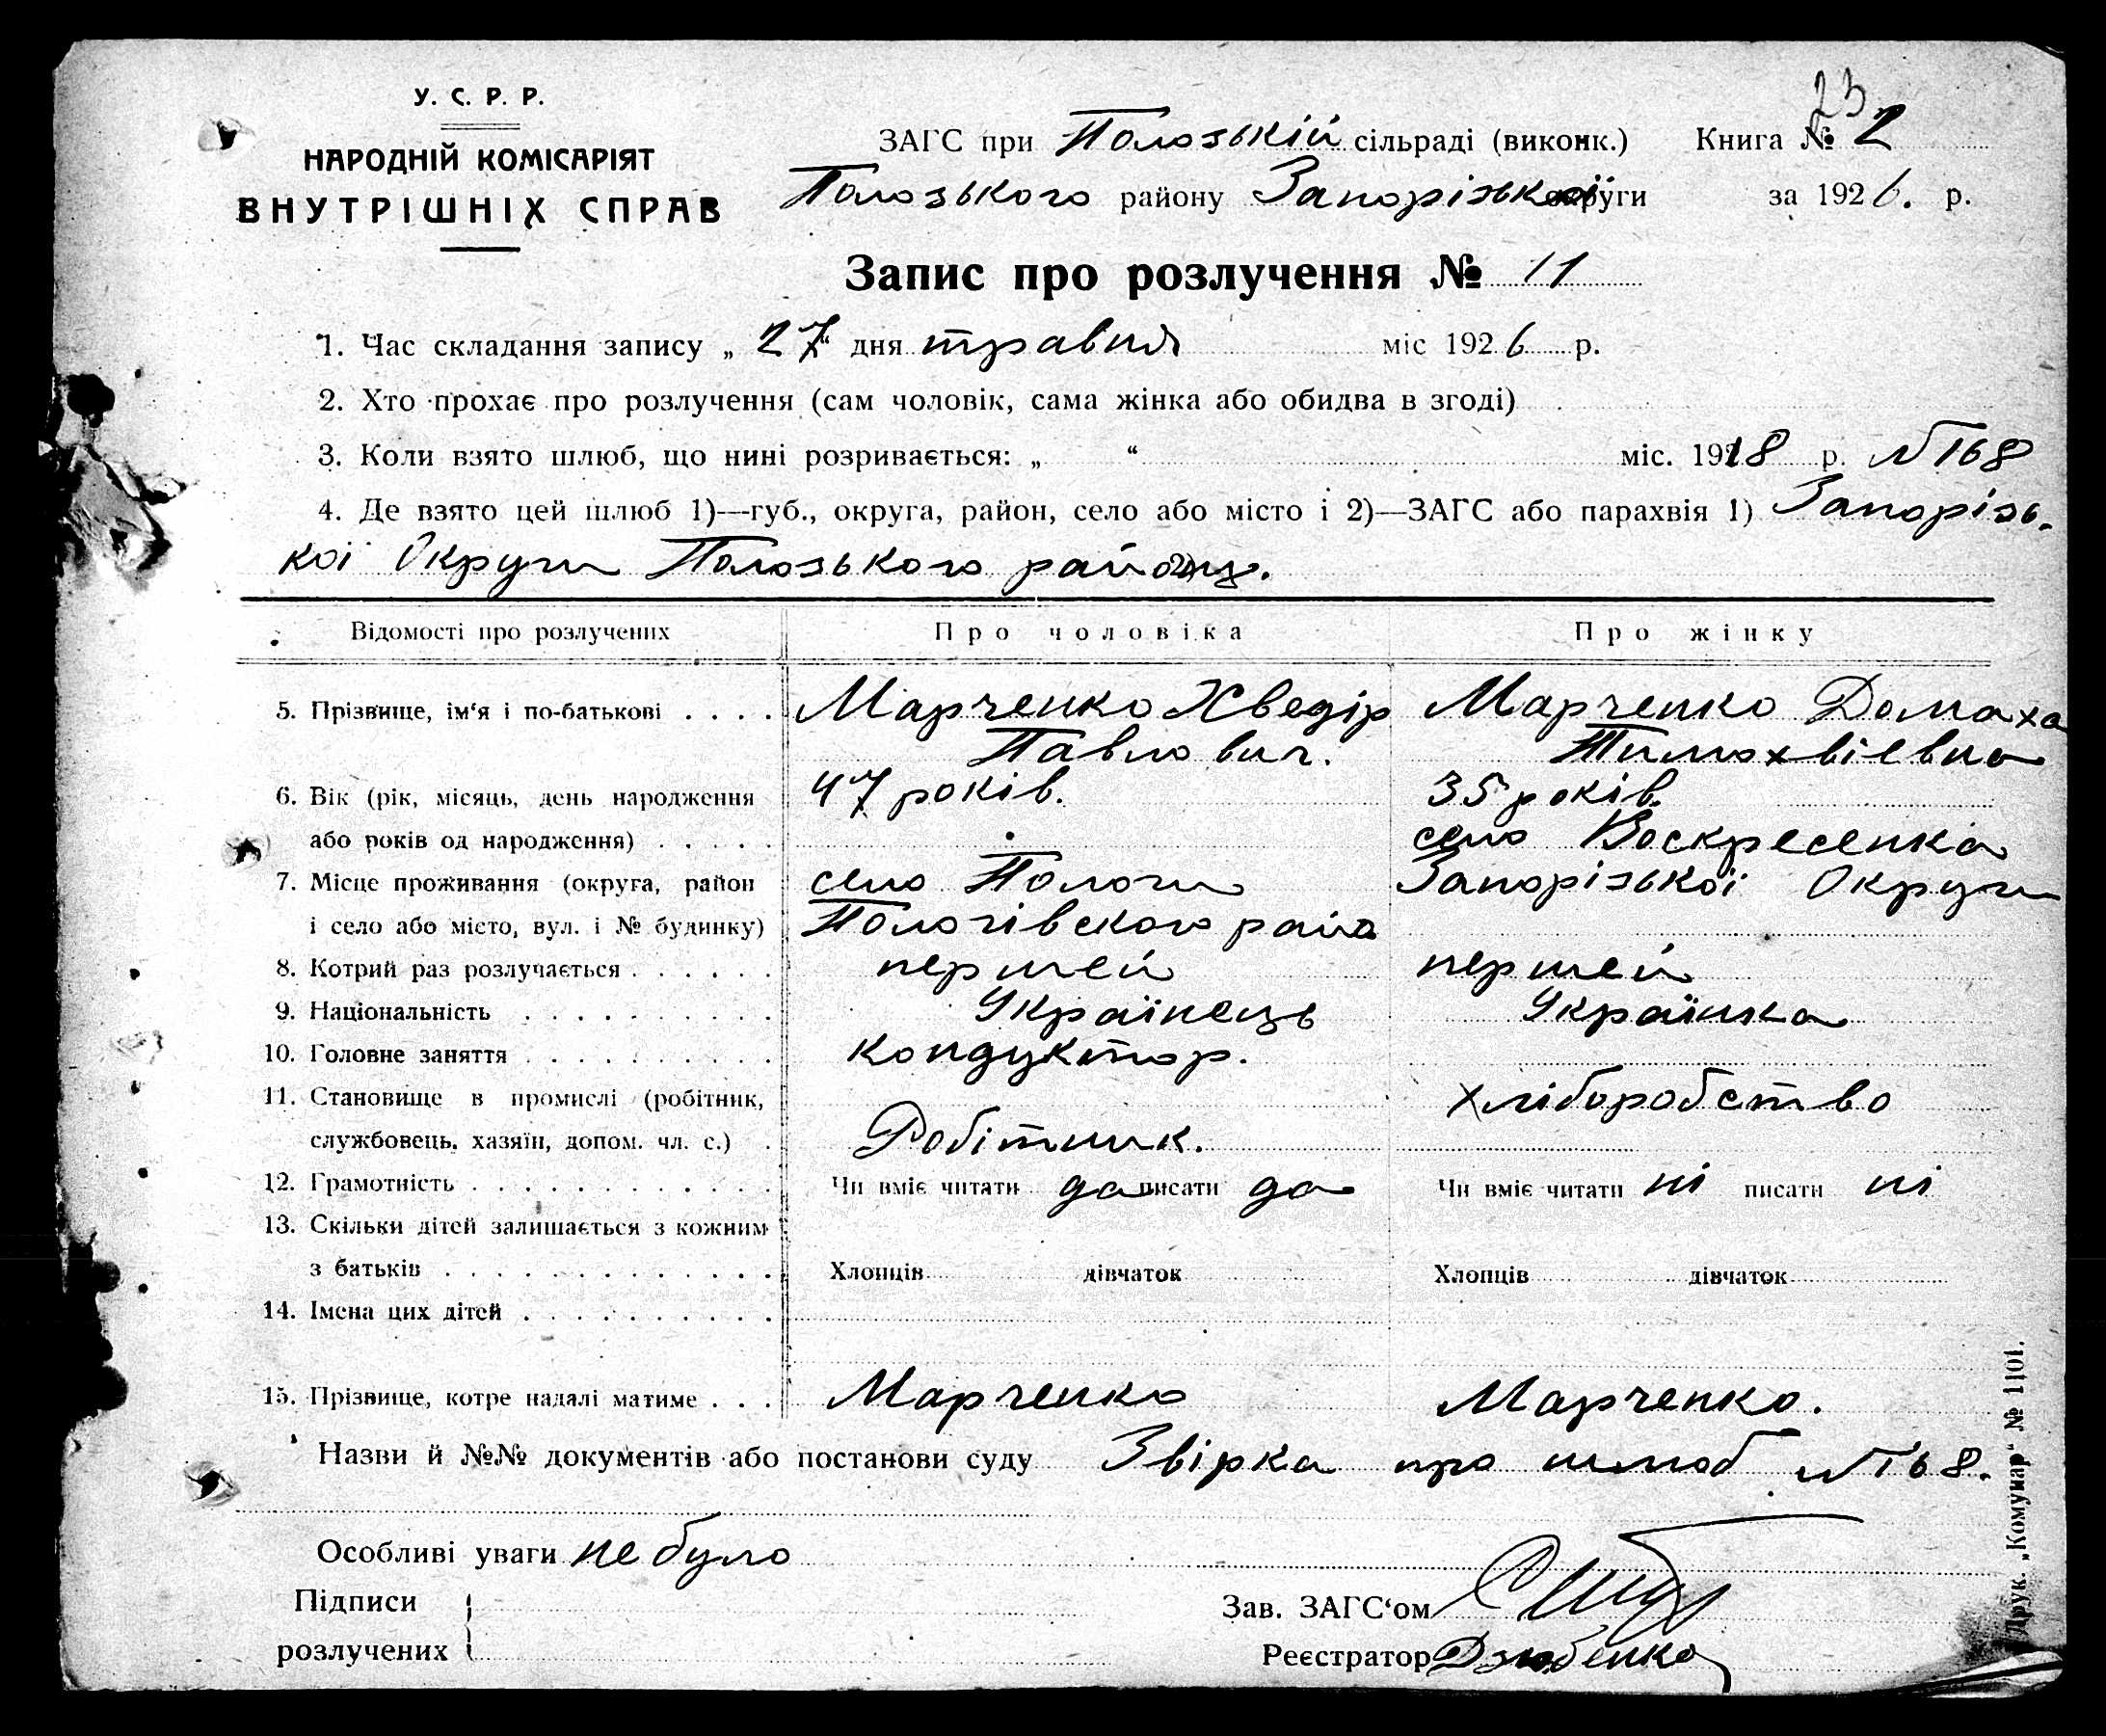 23
У. С. Р. Р.
НАРОДНІЙ КОМІСАРІЯТ
ВНУТРІШНІХ СПРАВ
ЗАГС при Полозькій сільраді (виконк.) Книга № 2
Полозького району Запорізької округи за 1926. р.
Запис про розлучення № 11
1. Час складання запису „ 27 “ дня травня міс 1926 р.
2. Хто прохає про розлучення (сам чоловік, сама жінка або обидва в згоді)
3. Коли взято шлюб, що нині розривається: „ “ міс. 1918 р. № 168
4. Де взято цей шлюб 1)—губ., округа, район, село або місто і 2)—ЗАГС або парахвія 1) Запорізь-
кої Округи Полозького району. 2)
Відомості про розлучених Про чоловіка Про жінку
5. Прізвище, ім‘я і по-батькові . . . . Марченко Хведір Марченко Домаха
Павлович. Тимохвіевна
6. Вік (рік, місяць, день народження 47 років. 35 років.
або років од народження) . . . . . село Воскресенка
7. Місце проживання (округа, район село Пологи Запорізької Округи
і село або місто, вул. і № будинку) Пологівского райо
8. Котрий раз розлучається . . . . . . першей першей
9. Національність . . . . . . . . . . Українець Українка
10. Головне заняття . . . . . . . . . . кондуктор.
11. Становище в промислі (робітник, хліборобство
службовець, хазяїн, допом. чл. с.) . Робітник.
12. Грамотність . . . . . . . . . . . . Чи вміє читати да писати да Чи вміє читати ні писати ні
13. Скільки дітей залишається з кожним
з батьків . . . . . . . . . . . . . Хлопців дівчаток Хлопців дівчаток
14. Імена цих дітей . . . . . . . . . .
15. Прізвище, котре надалі матиме . . . Марченко Марченко.
Назви й №№ документів або постанови суду Звірка про шлюб № 168.
Особливі уваги не було
Підписи
розлучених
Зав. ЗАГС‘ом
Реєстратор Дзюбенко
Друк. „Комунар“ № 1101.